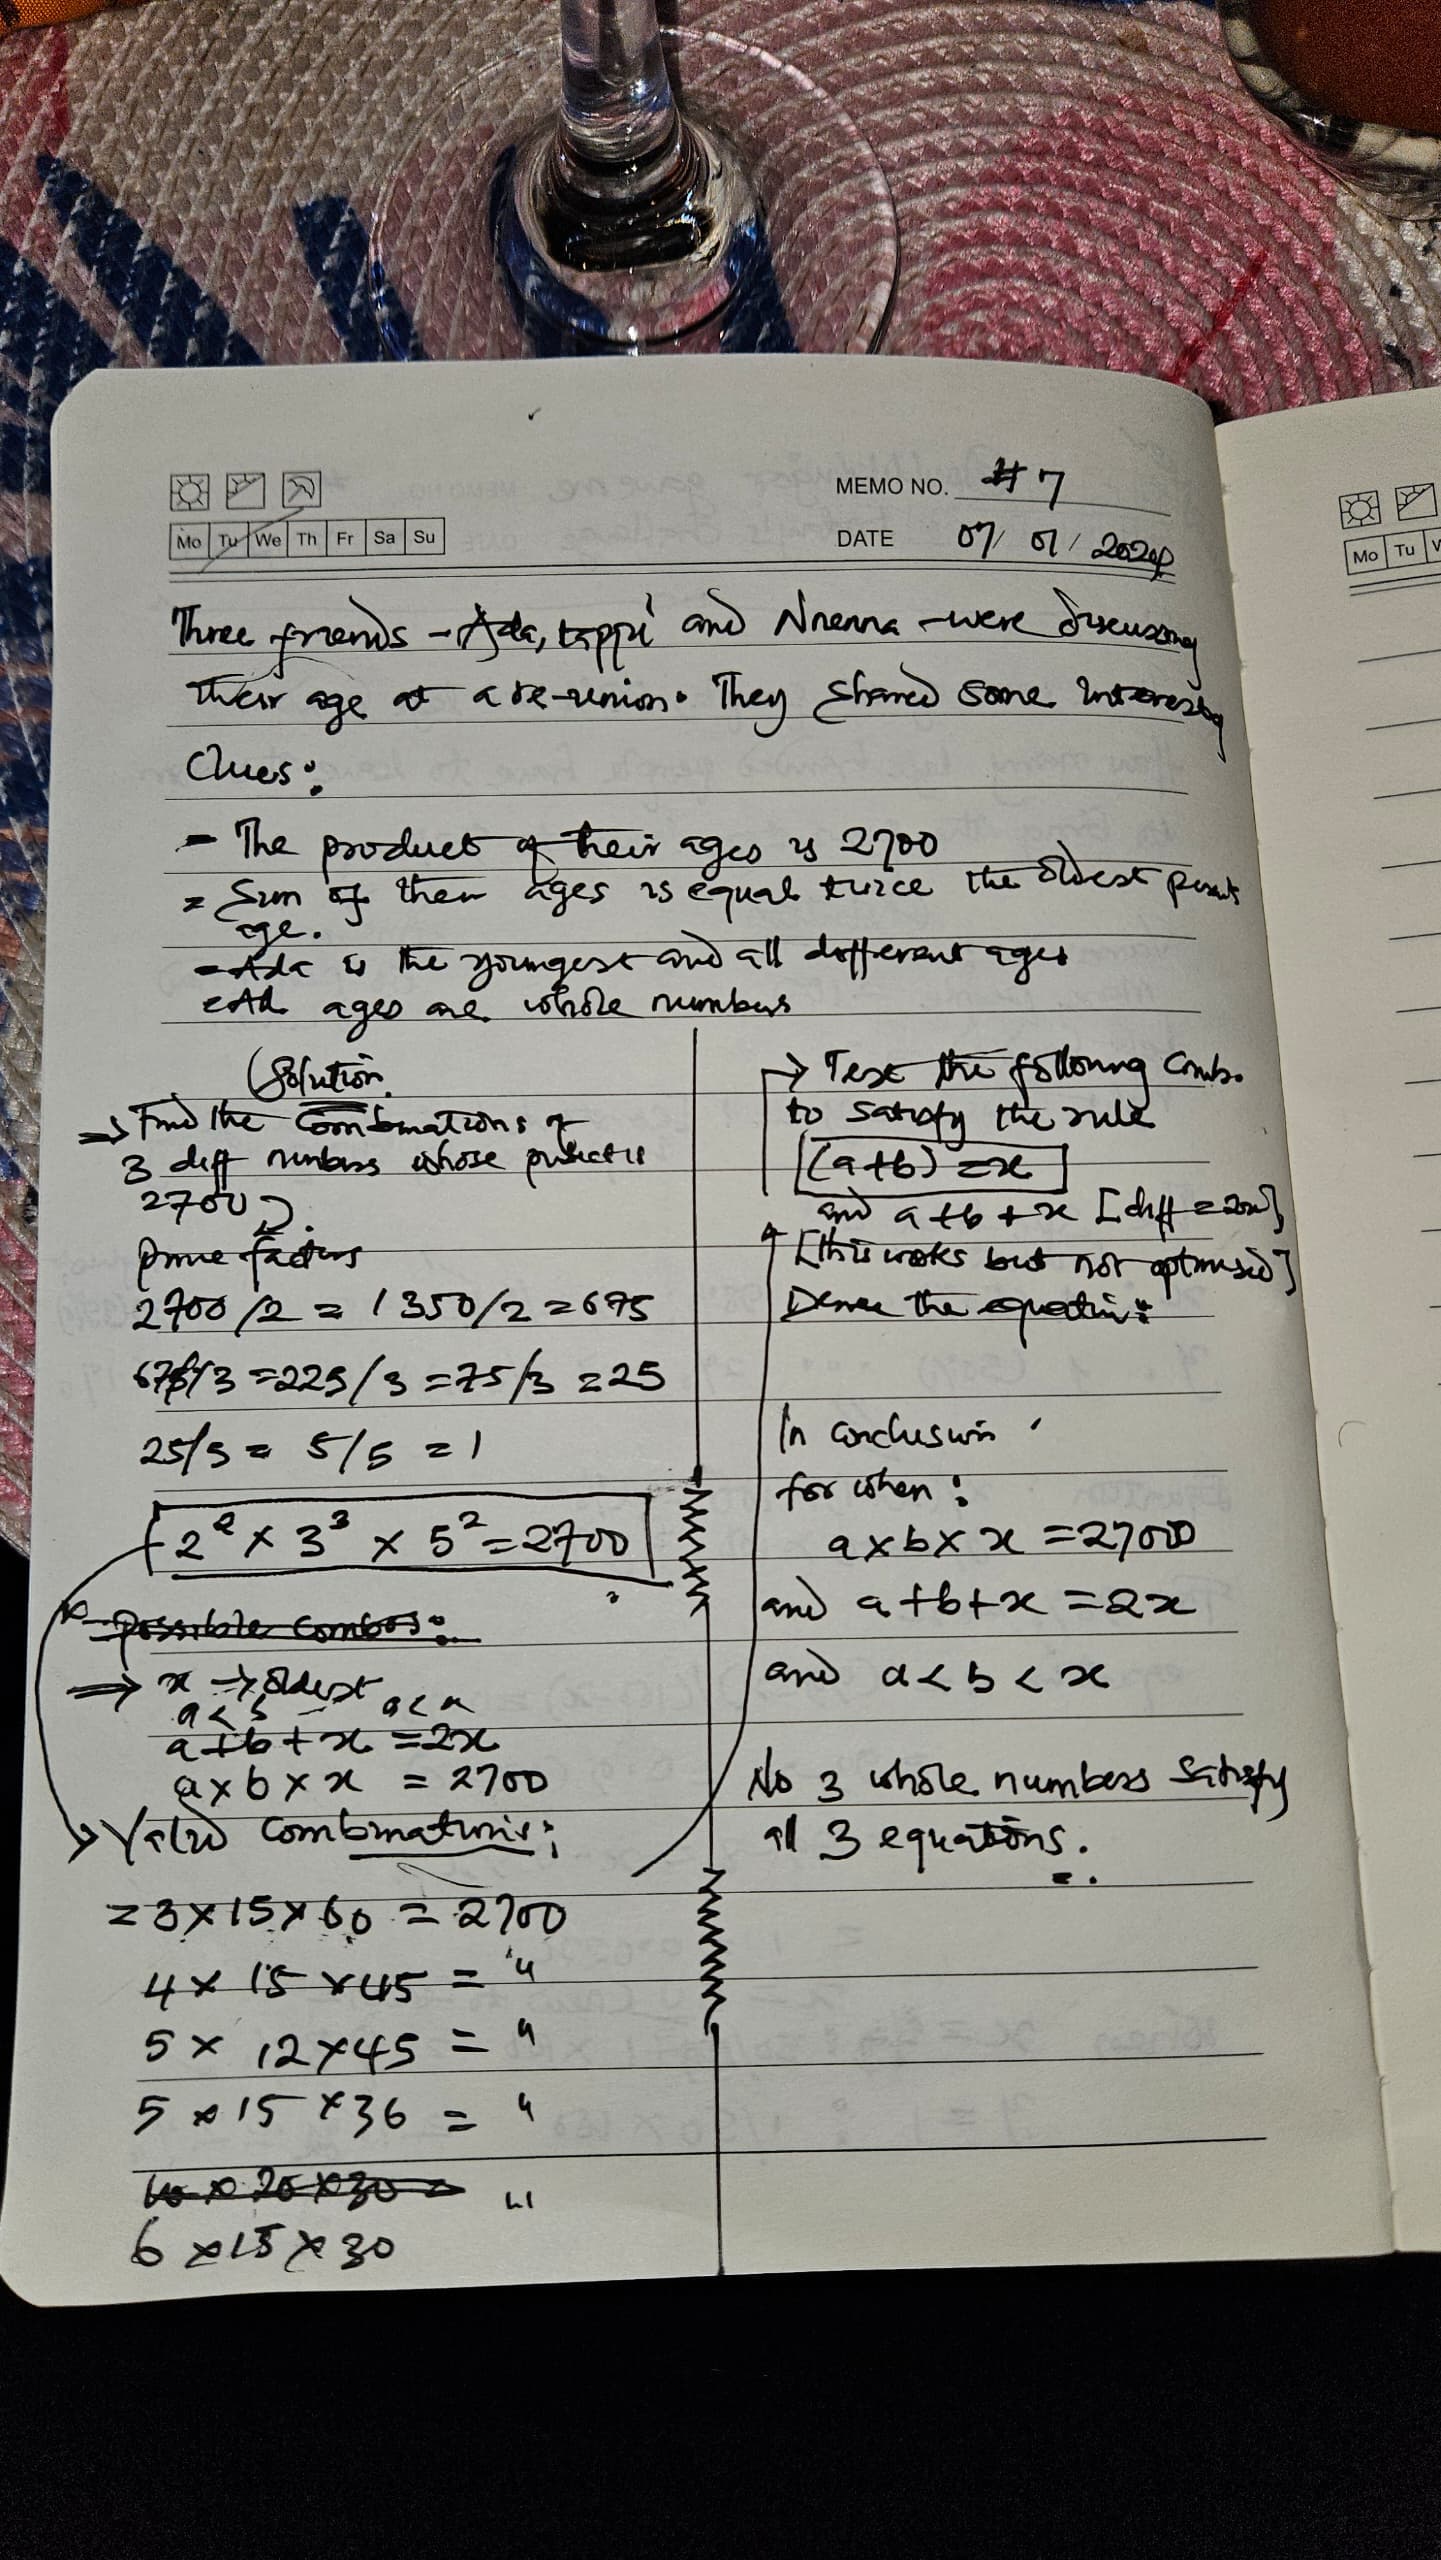 MEMO NO. # 7
Mo Tu We Th Fr Sa Su
DATE 07/01/2024
Mo Tu
Three friends - Ada, and Nnenna - were discussing
their age at a re-union. They shared some interesting
Clues:
- The product of their ages is 2700
= Sum of their ages is equal twice the oldest
age.
- Ada is the youngest and all different ages
All ages are whole numbers
Solution
⇒ Find the Combinations of
3 diff numbers whose product is
2700
prime factors
2700/2 = 1350/2 = 675
675/3 = 225/3 = 75/3 = 25
25/5 = 5/5 = 1
2² x 3³ x 5² = 2700
possible combos:
⇒ x → oldest
a < b
a + b + x = 2x
a x b x x = 2700
Valid Combinations:
= 3 x 15 x 60 = 2700
4 x 15 x 45 = "
5 x 12 x 45 = "
5 x 15 x 36 = "
"
6 x 15 x 30
→ Test the following Comb.
to satisfy the rule
(a+b) = x
and a + b + x
[this works but not optimised]
Derive the equation:
In conclusion
for when:
a x b x x = 2700
and a + b + x = 2x
and a < b < x
No 3 whole numbers satisfy
all 3 equations.